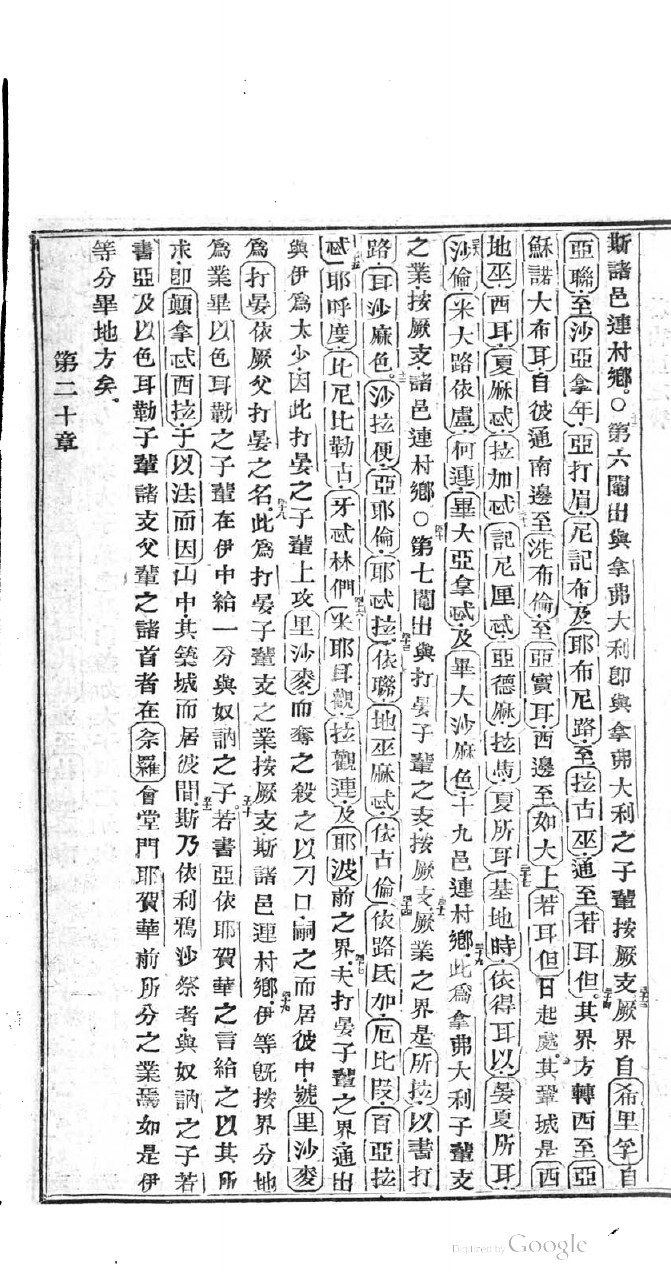 斯諸邑連村鄉。○第六鬮出與拿弗大利卽與拿弗大利之子輩按厥支厥界自希里孚自
亞聯至沙亞拿年亞打眉尼記布及耶布尼路至拉古巫通至若耳但。其界方轉西至亞
穌諾大布耳自彼通南邊至洗布倫至亞實耳西邊至如大上若耳但日起處。其鞏城是西
地巫西耳夏麻忒拉加忒記尼厘忒亞德麻拉馬夏所耳基地時依得耳以晏夏所耳
沙倫米大路依盧何連畢大亞拿忒及畢大沙麻色十九邑連村鄉此爲拿弗大利子輩支
之業按厥支諸邑連村鄉○第七鬮出與打晏子輩之支按厥支厥業之界是所拉以書打
路耳沙麻色沙拉便亞耶倫耶忒拉依聯地巫麻忒依古倫依路氐加厄比段百亞拉
忒耶呼度比尼比勒古牙忒林們米耶耳觀拉觀連及耶波前之界夫打晏子輩之界通出
與伊爲太少因此打晏之子輩上攻里沙麥而奪之殺之以刀口嗣之而居彼中號里沙麥
爲打晏依厥父打晏之名。此爲打晏子輩支之業按厥支斯諸邑連村鄉伊等旣按界分地
爲業畢以色耳勒之子輩在伊中給一分與奴訥之子。若書亞依耶賀華之言給之以其所
求卽顛拿忒西拉于以法而因山中其築城而居彼間斯乃依利鴉沙祭者與奴訥之子若
書亞及以色耳勒子輩諸支父輩之諸首者在柰羅會堂門耶賀華前所分之業焉如是伊
等分畢地方矣。
第二十章
Digitized by Google